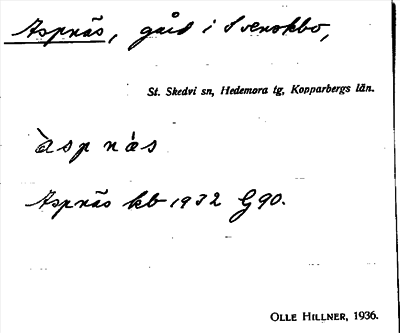 Aspnäs, gård i Svenskbo,
St. Skedvi sn, Hedemora tg, Kopparbergs län.
àspnä̀s
Aspnäs kb 1932 G90.
OLLE HILLNER, 1936.